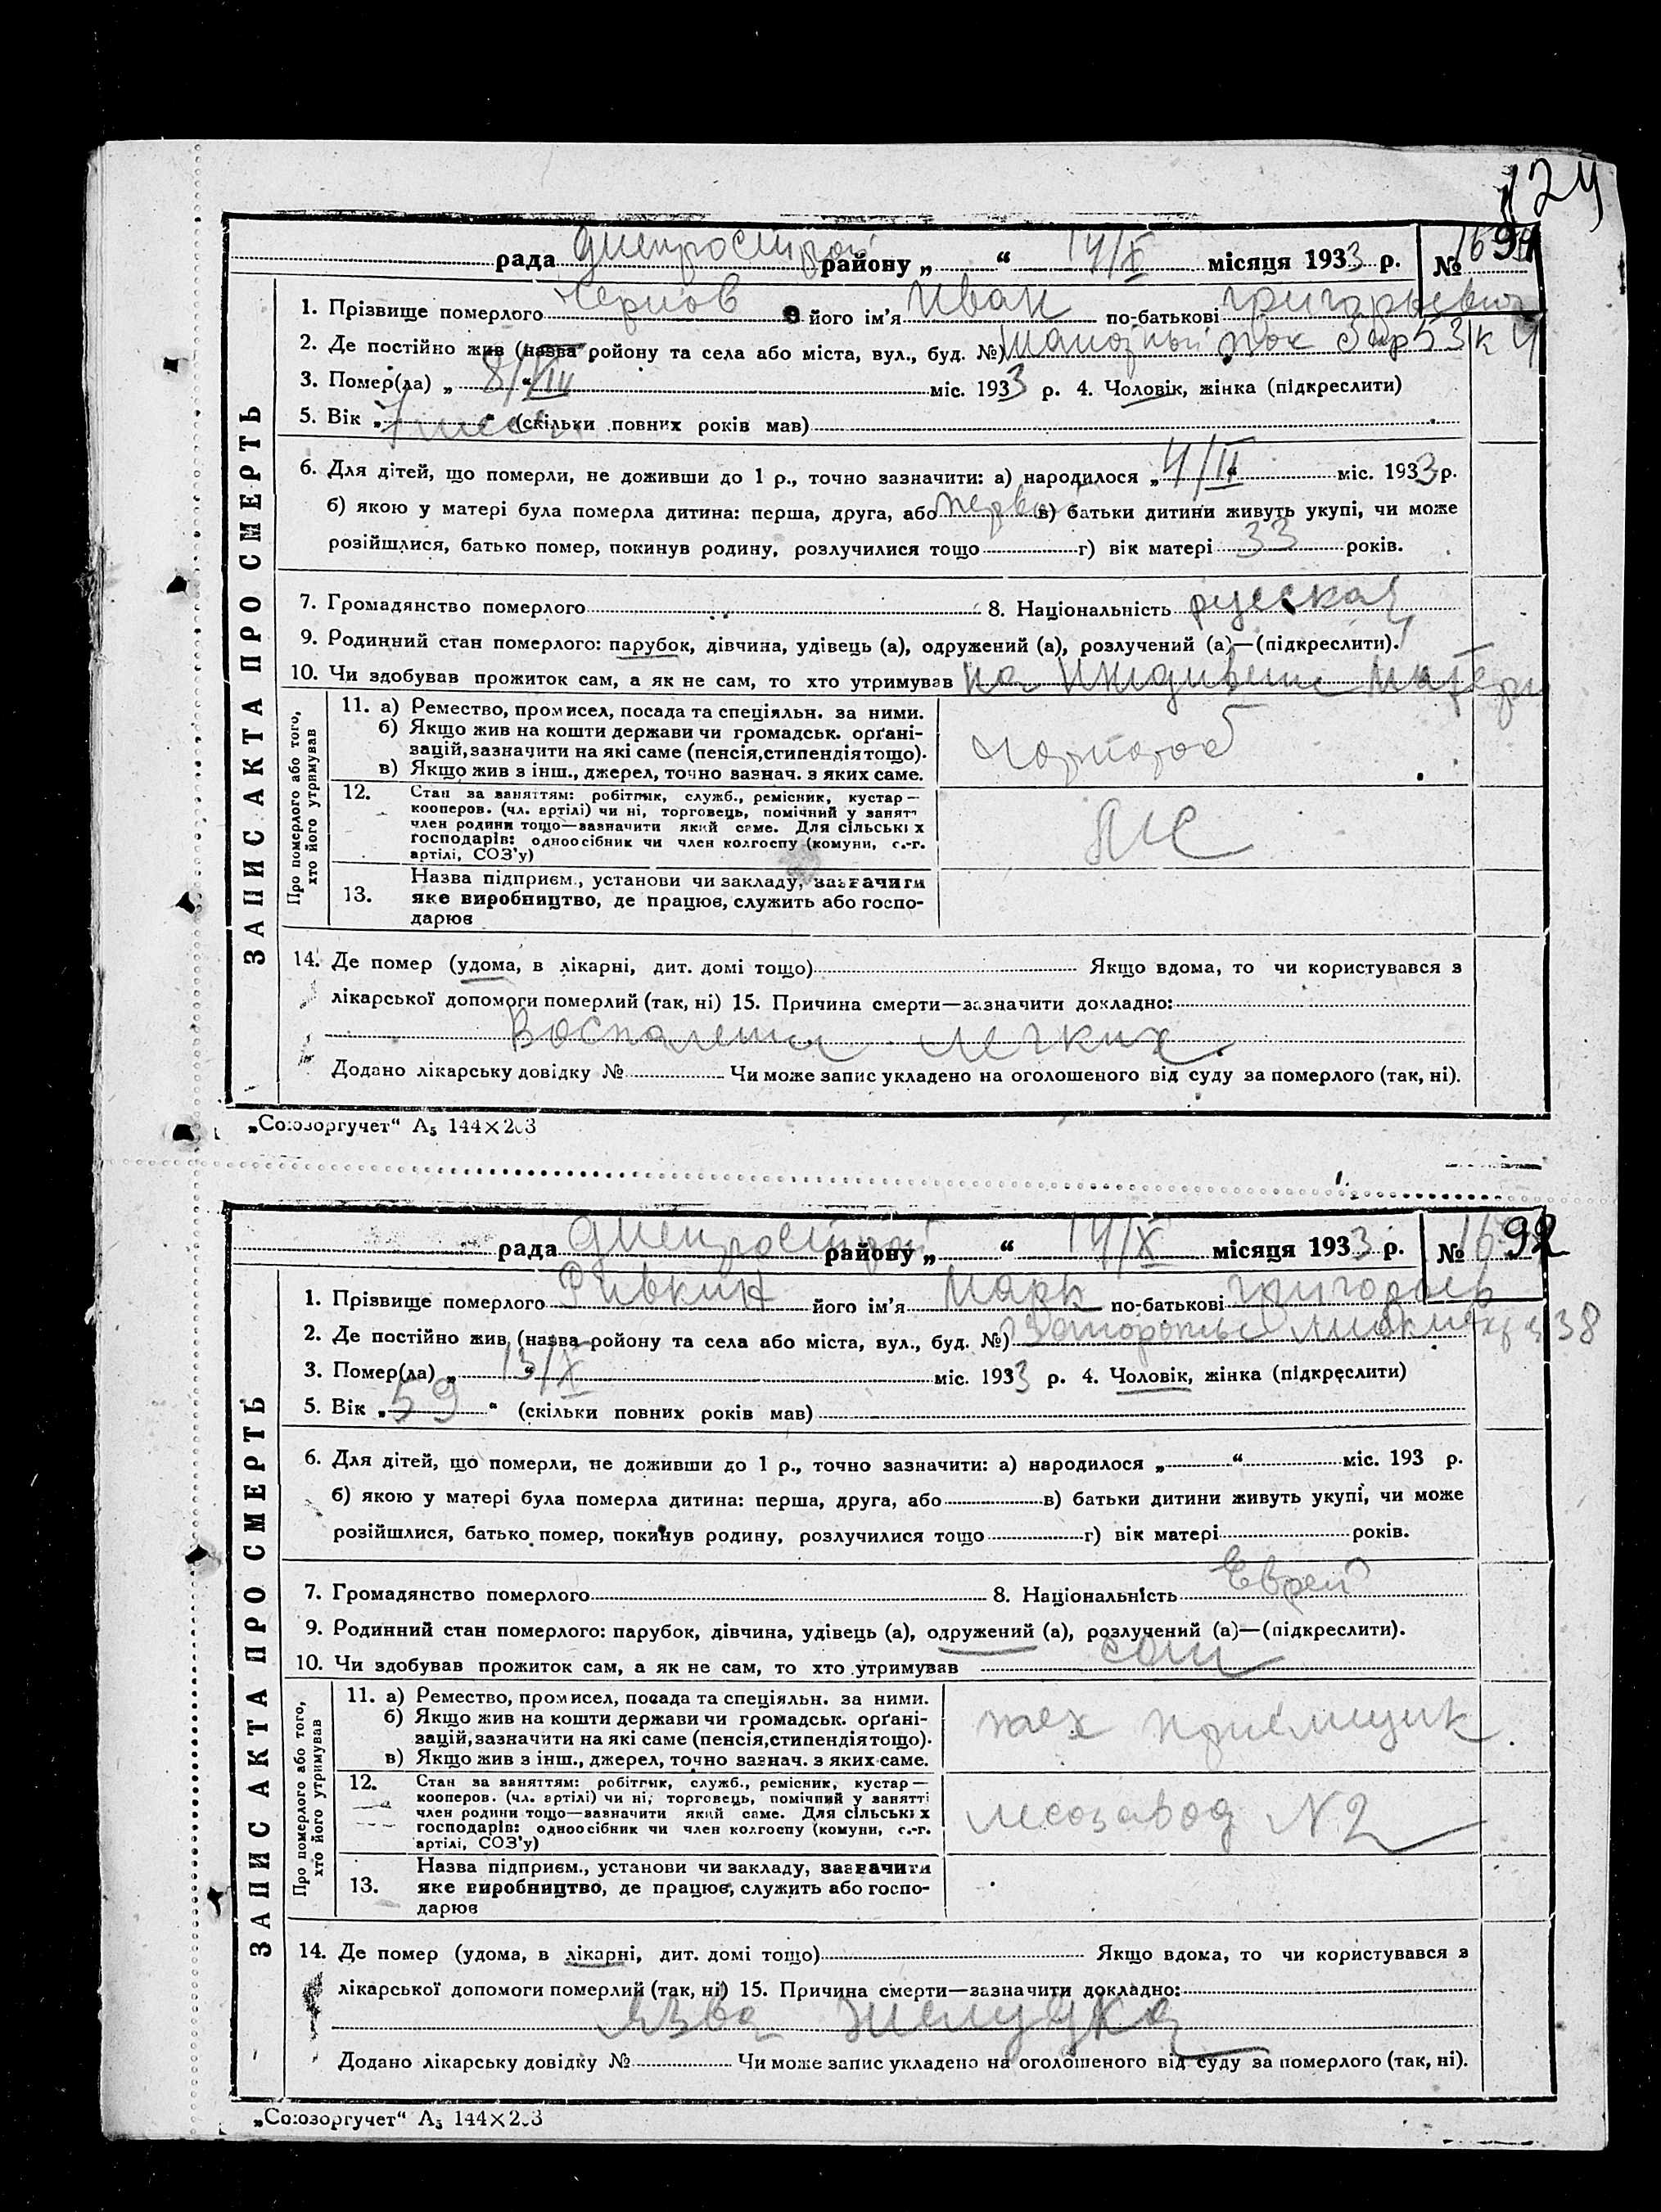 124
рада Днепрострой району „ “ 14/X місяця 1933 р. № 91
1. Прізвище померлого Чернов його ім’я Иван по-батькові Григорьевич
2. Де постійно жив (назва ройону та села або міста, вул., буд. №) бар 53 к 4
3. Помер(ла) „ 8/ “ міс. 1933 р. 4. Чоловік, жінка (підкреслити)
5. Вік „ 7 мес “ (скільки повних років мав)
6. Для дітей, що померли, не доживши до 1 р., точно зазначити: а) народилося „ 4/II “ міс. 1933 р.
б) якою у матері була померла дитина: перша, друга, або перва в) батьки дитини живуть укупі, чи може
розійшлися, батько помер, покинув родину, розлучилися тощо г) вік матері 33 років.
7. Громадянство померлого 8. Національність русская
9. Родинний стан померлого: парубок, дівчина, удівець (а), одружений (а), розлучений (а)—(підкреслити).
10. Чи здобував прожиток сам, а як не сам, то хто утримував на иждивении матери
ЗАПИС АКТА ПРО СМЕРТЬ
Про померлого або того, хто його утримував
11. а) Ремество, промисел, посада та спеціяльн. за ними.
б) Якщо жив на кошти держави чи громадськ. орґані-
зацій, зазначити на які саме (пенсія, стипендія тощо).
в) Якщо жив з інш., джерел, точно зазнач. з яких саме.
чорнороб
12. Стан за заняттям: робітник, служб., ремісник, кустар—
кооперов. (чл. артілі) чи ні, торговець, помічний у занятт
член родини тощо—зазначити який саме. Для сільських
господарів: одноосібник чи член колгоспу (комуни, с.-г.
артілі, СОЗ’у)
13. Назва підприєм., установи чи закладу, зазначити
яке виробництво, де працює, служить або госпо-
дарює
14. Де помер (удома, в лікарні, дит. домі тощо) Якщо вдома, то чи користувався з
лікарської допомоги померлий (так, ні) 15. Причина смерти—зазначити докладно:
Воспаление легких
Додано лікарську довідку № Чи може запис укладено на оголошеного від суду за померлого (так, ні).
„Союзоргучет“ А₅ 144×203
рада Днепрострой району „ “ 14/X місяця 1933 р. № 92
1. Прізвище померлого Ривкин його ім’я Марк по-батькові Григорьев
2. Де постійно жив (назва ройону та села або міста, вул., буд. №) Запорожье 38
3. Помер(ла) „ 13/X “ міс. 1933 р. 4. Чоловік, жінка (підкреслити)
5. Вік „ 59 “ (скільки повних років мав)
6. Для дітей, що померли, не доживши до 1 р., точно зазначити: а) народилося „ “ міс. 193 р.
б) якою у матері була померла дитина: перша, друга, або в) батьки дитини живуть укупі, чи може
розійшлися, батько помер, покинув родину, розлучилися тощо г) вік матері років.
7. Громадянство померлого 8. Національність Еврей
9. Родинний стан померлого: парубок, дівчина, удівець (а), одружений (а), розлучений (а)—(підкреслити).
10. Чи здобував прожиток сам, а як не сам, то хто утримував сам
ЗАПИС АКТА ПРО СМЕРТЬ
Про померлого або того, хто його утримував
11. а) Ремество, промисел, посада та спеціяльн. за ними.
б) Якщо жив на кошти держави чи громадськ. орґані-
зацій, зазначити на які саме (пенсія, стипендія тощо).
в) Якщо жив з інш., джерел, точно зазнач. з яких саме.
тех приемщик
12. Стан за заняттям: робітник, служб., ремісник, кустар—
кооперов. (чл. артілі) чи ні, торговець, помічний у занятті
член родини тощо—зазначити який саме. Для сільських
господарів: одноосібник чи член колгоспу (комуни, с.-г.
артілі, СОЗ’у)
лесозавод N 2
13. Назва підприєм., установи чи закладу, зазначити
яке виробництво, де працює, служить або госпо-
дарює
14. Де помер (удома, в лікарні, дит. домі тощо) Якщо вдома, то чи користувався з
лікарської допомоги померлий (так, ні) 15. Причина смерти—зазначити докладно:
Язва желудка
Додано лікарську довідку № Чи може запис укладено на оголошеного від суду за померлого (так, ні).
„Союзоргучет“ А₅ 144×203